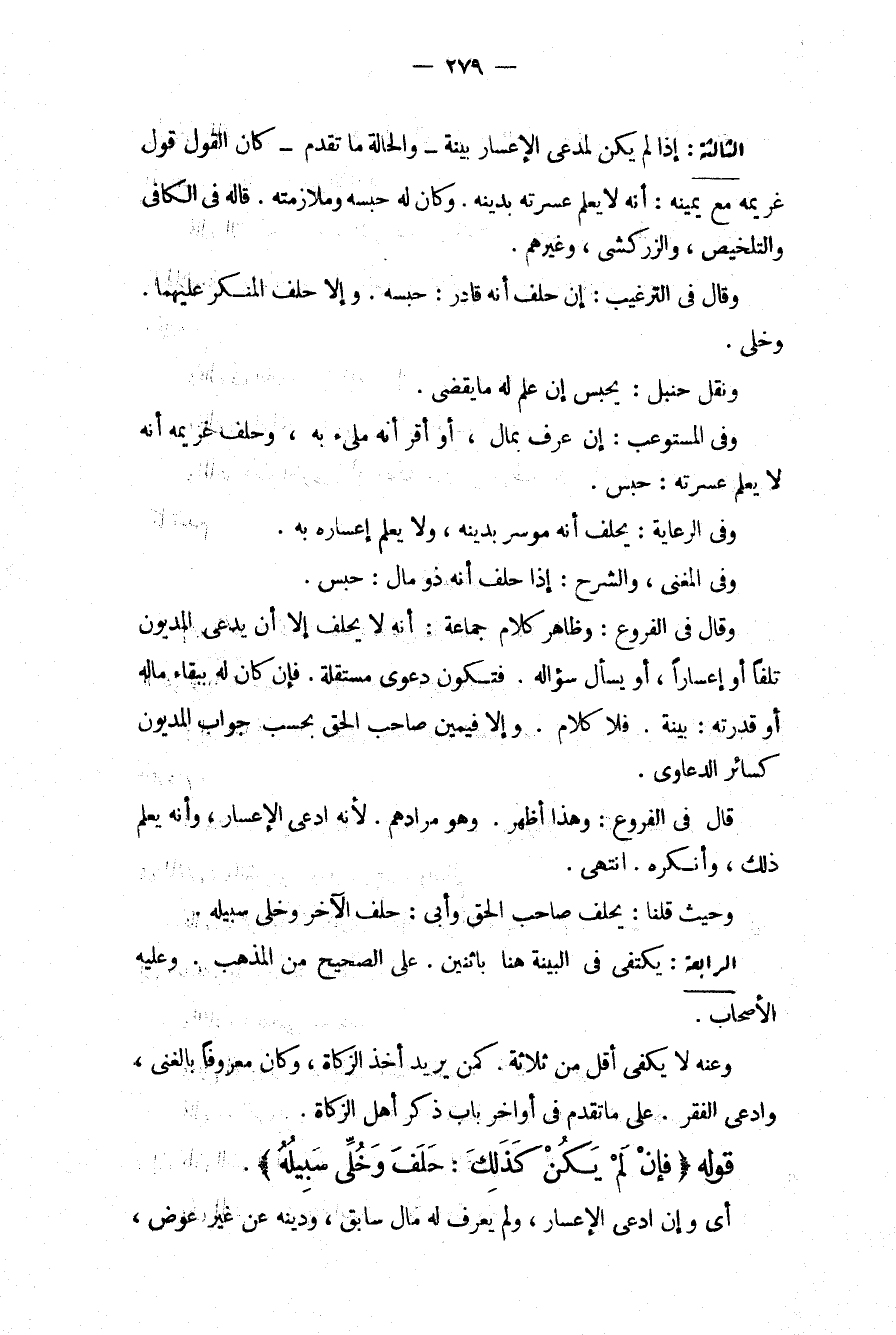 — ٢٧٩ —
الثالثة : إذا لم يكن لمدعى الإعسار بينة ــ والحالة ما تقدم ــ كان القول قول
غريمه مع يمينه : أنه لا يعلم عسرته بدينه . وكان له حبسه وملازمته . قاله فى الكافى
والتلخيص ، والزركشى ، وغيرهم .
وقال فى الترغيب : إن حلف أنه قادر : حبسه . وإلا حلف المنكر عليهما .
وخلى .
ونقل حنبل : يحبس إن علم له مايقضى .
وفى المستوعب : إن عرف بمال ، أو أقر أنه ملىء به ، وحلف غريمه أنه
لا يعلم عسرته : حبس .
وفى الرعاية : يحلف أنه موسر بدينه ، ولا يعلم إعساره به .
وفى المغنى ، والشرح : إذا حلف أنه ذو مال : حبس .
وقال فى الفروع : وظاهر كلام جماعة : أنه لا يحلف إلا أن يدعى المديون
تلفاً أو إعساراً ، أو يسأل سؤاله . فتكون دعوى مستقلة . فإن كان له ببقاء ماله
أو قدرته : بينة . فلا كلام . وإلا فيمين صاحب الحق بحسب جواب المديون
كسائر الدعاوى .
قال فى الفروع : وهذا أظهر . وهو مرادهم . لأنه ادعى الإعسار ، وأنه يعلم
ذلك ، وأنكره . انتهى .
وحيث قلنا : يحلف صاحب الحق وأبى : حلف الآخر وخلى سبيله .
الرابعة : يكتفى فى البينة هنا باثنين . على الصحيح من المذهب . وعليه
الأصحاب .
وعنه لا يكفى أقل من ثلاثة . كمن يريد أخذ الزكاة ، وكان معروفاً بالغنى ،
وادعى الفقر . على ماتقدم فى أواخر باب ذكر أهل الزكاة .
قوله ﴿ فَإِنْ لَمْ يَكُنْ كَذَلِكَ : حَلَفَ وَخُلِّى سَبِيلُهُ ﴾ .
أى وإن ادعى الإعسار ، ولم يعرف له مال سابق ، ودينه عن غير عوض ،